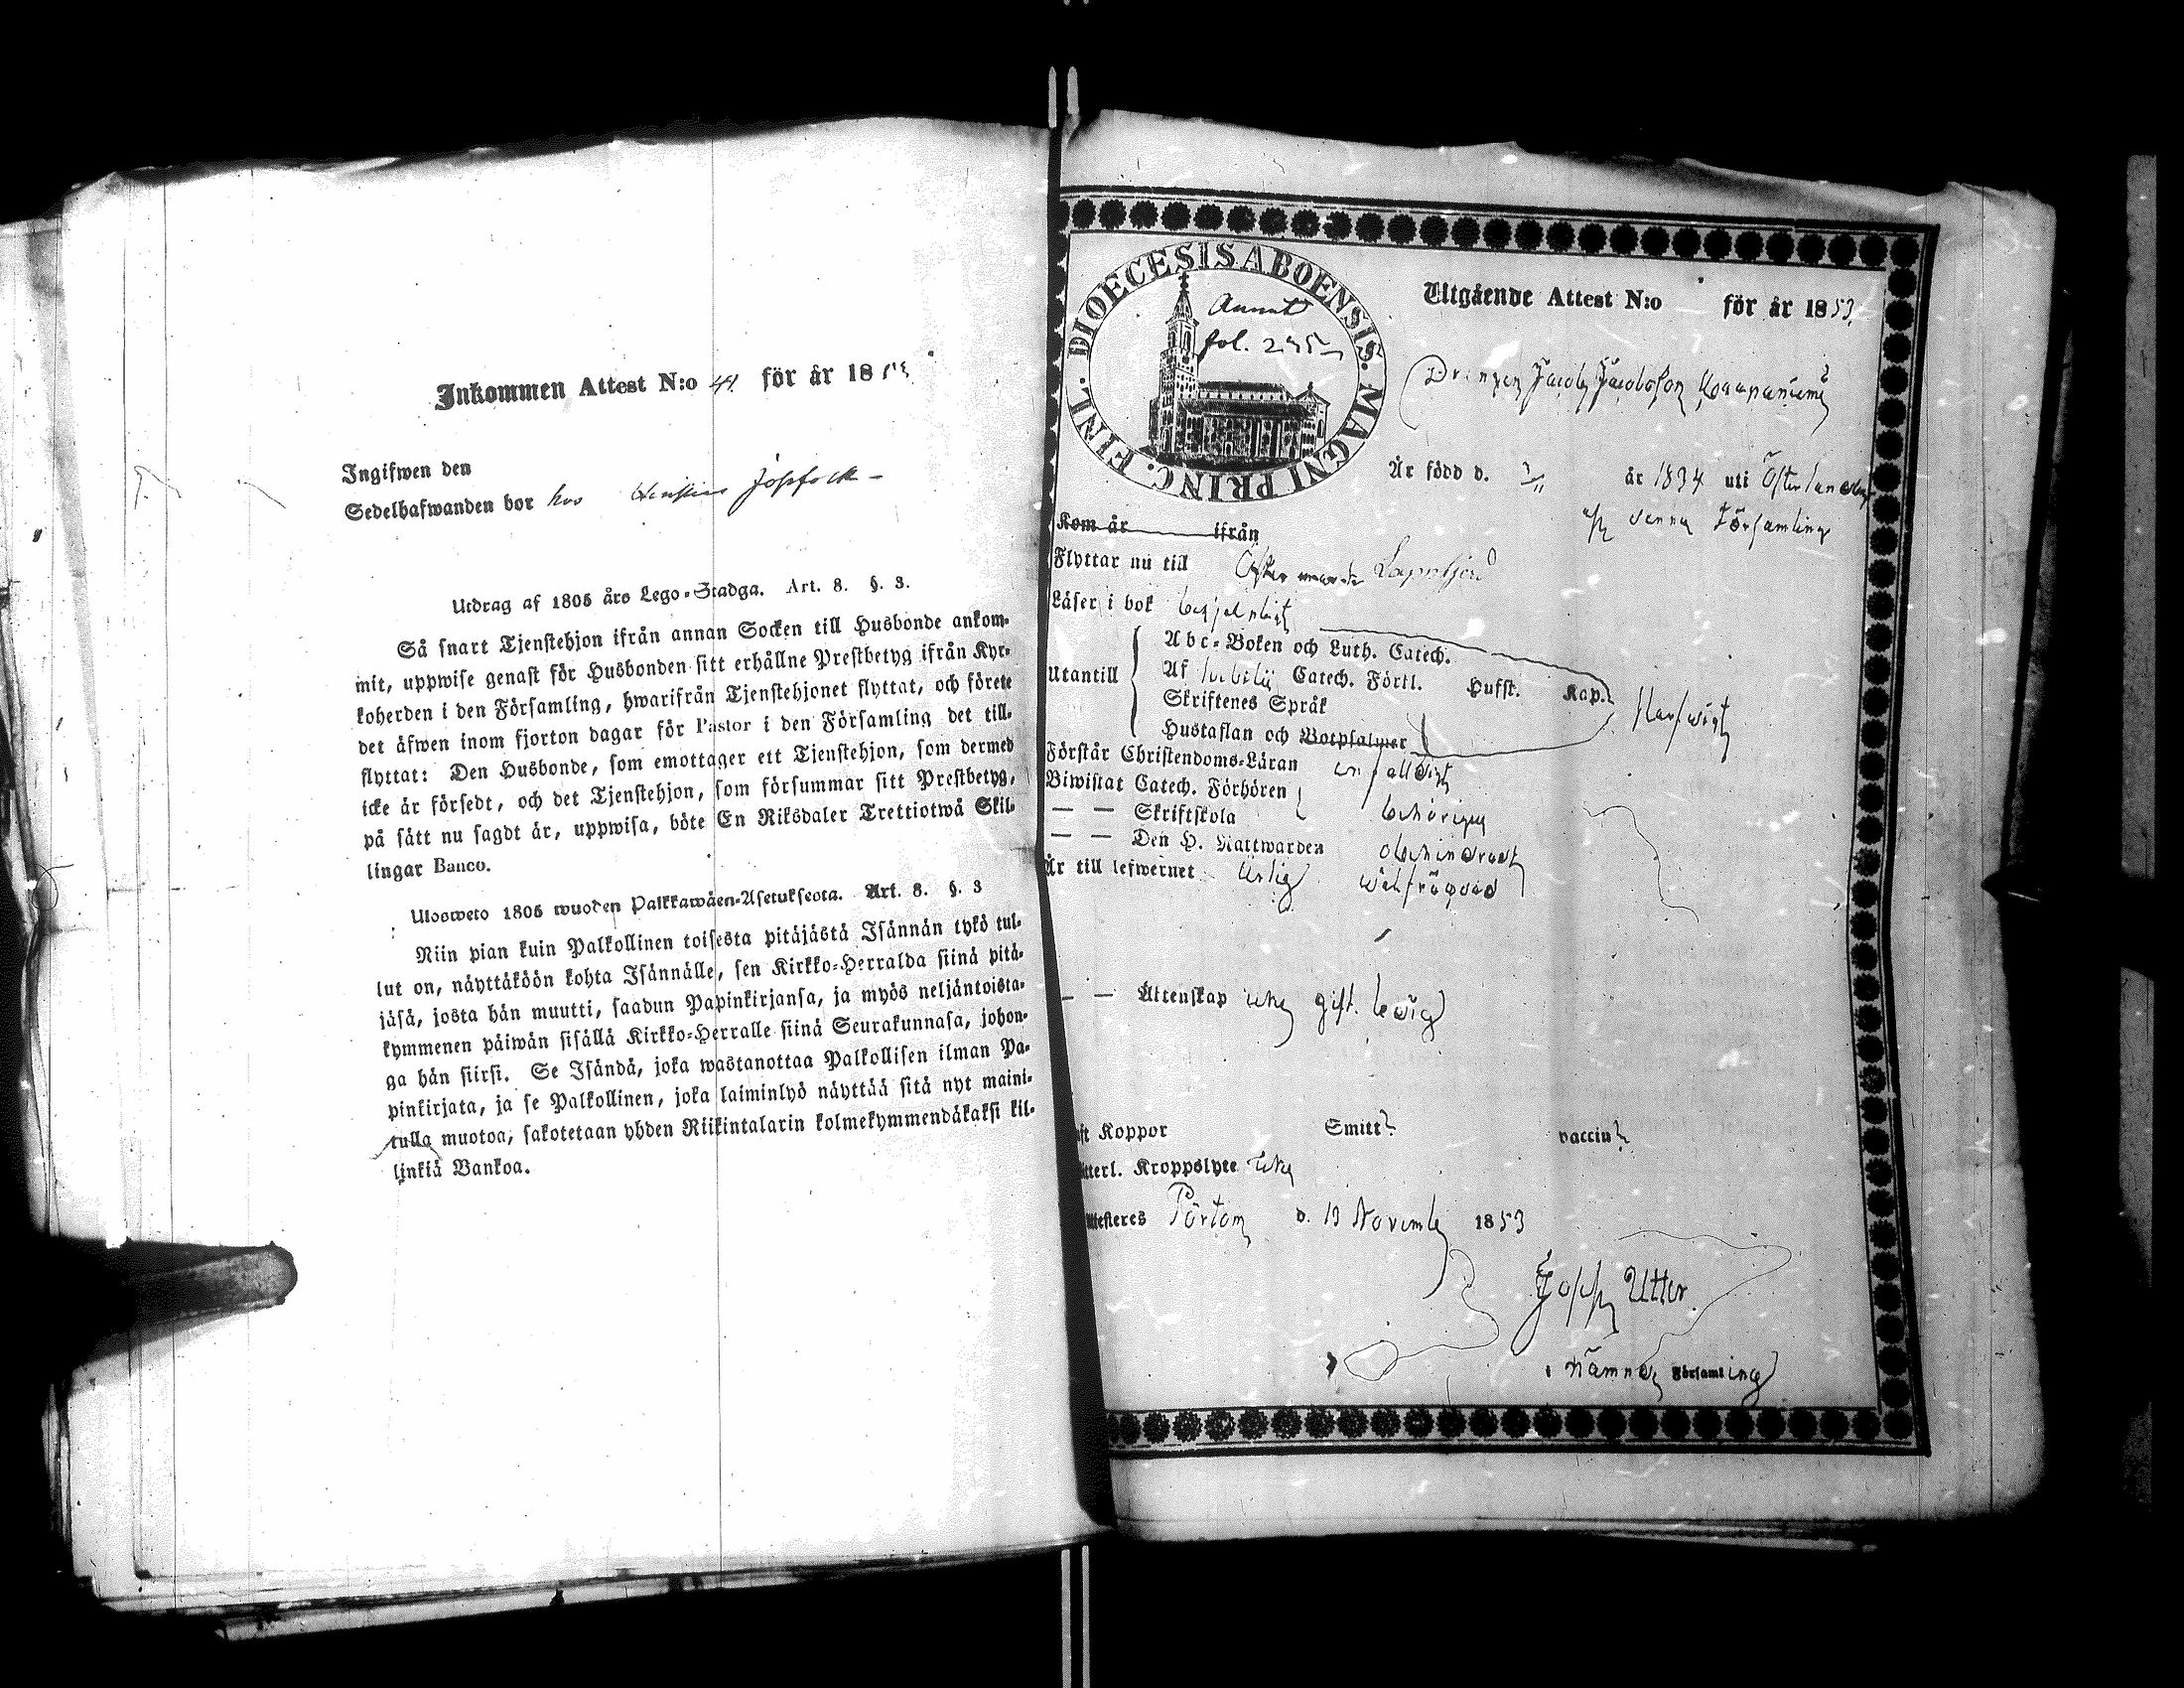 Inkommen Attest N:o 41 för år 18
Ingifwen den
Sedelhafwanden bor hos
Utdrag af 1805 års Lego-Stadga. Art. 8. §. 3.
Så snart Tjenstehjon ifrån annan Socken till Husbonde ankom-
mit, uppwise genast för Husbonden sitt erhållne Prestbetyg ifrån Kyr-
koherden i den Församling, hwarifrån Tjenstehjonet flyttat, och förete
det äfwen inom fjorton dagar för Pastor i den Församling det till-
flyttat: Den Husbonde, som emottager ett Tjenstehjon, som dermed
icke är försedt, och det Tjenstehjon, som försummar sitt Prestbetyg,
på sätt nu sagdt är, uppwisa, böte En Riksdaler Trettiotwå Skil-
lingar Banco.
Ulosweto 1805 wuoden Palkkawäen-Asetuksesta. Art. 8. §. 3
Niin pian kuin Palkollinen toisesta pitäjästä Isännän tykö tul-
lut on, näyttäköön kohta Isännälle, sen Kirkko-Herralda siinä pitä-
jäsä, josta hän muutti, saadun Papinkirjansa, ja myös neljäntoista-
kymmenen päiwän sisällä Kirkko-Herralle siinä Seurakunnasa, johon-
ga hän siirsi. Se Isändä, joka wastanottaa Palkollisen ilman Pa-
pinkirjata, ja se Palkollinen, joka laiminlyö näyttää sitä nyt maini-
tulla muotoa, sakotetaan yhden Riikintalarin kolmekymmendäkaksi kil-
linkiä Bankoa.
DIOECESIS ABOENSIS. MAGNI PRINC. FINL.
fol. 245
Utgående Attest N:o för år 1853.
Drengen Jacob Jacobsson
Är född d. 3/11 år 1834 uti Österlandet
af denna Församling
Kom år ifrån
Flyttar nu till Lappfjerd
Läser i bok
Utantill
Abc-Boken och Luth. Catech.
Af Catech. Förkl. Husst. Kap.
Skriftenes Språk
Hustaflan och Botpsalmer
Förstår Christendoms-Läran enfalldigt
Biwistat Catech. Förhören
— — Skriftskola behörigen
— — Den H. Nattwarden obehindradt
Är till lefwernet ärlig wälfrägdad
— — Äktenskap icke gift. ledig
Koppor Smitt vaccin
Kroppslyte icke
Pörtom d. 13 Novemb 1853
Utter
i nämnde Församling